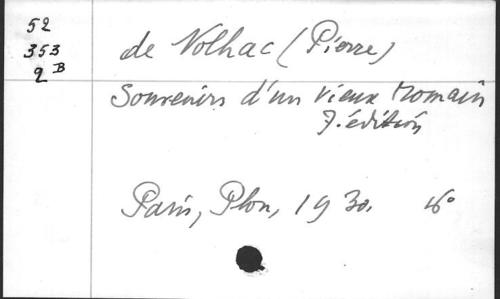 52
353
2 B
de Nolhac (Pierre)
Souvenirs d'un vieux Romain
7. édition
Paris, Plon, 1930. 16°